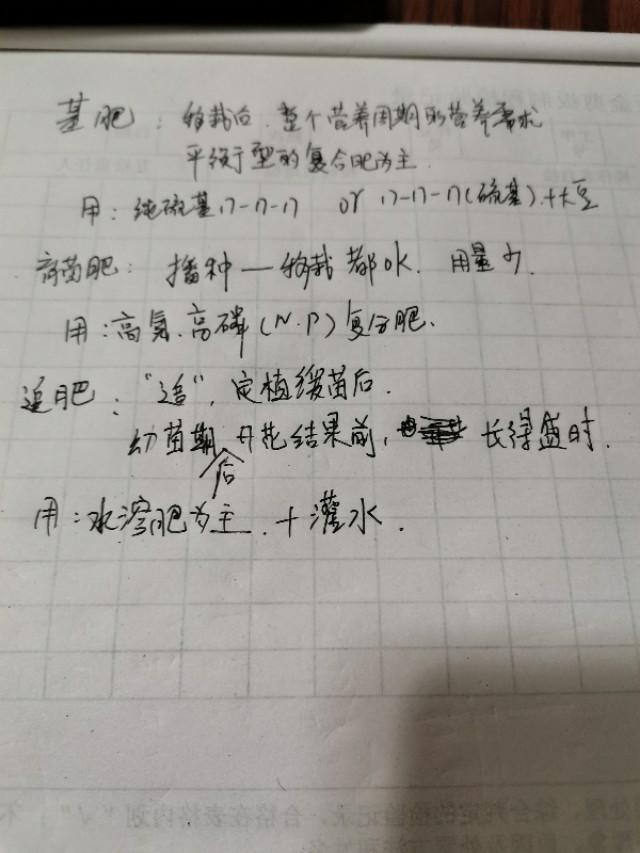 基肥：移栽后.整个营养周期的营养需求
平衡型的复合肥为主.
用：纯硫基17-17-17 or 17-17-17(硫基)+大豆
育苗肥：播种—移栽都ok. 用量少.
用：高氮.高磷(N.P)复合肥.
追肥："追"，定植缓苗后.
幼苗期后开花结果前， 长得盛时.
用：水溶肥为主.+灌水.
处理，综合判定的检验记录，合格在表格内划"√"，不